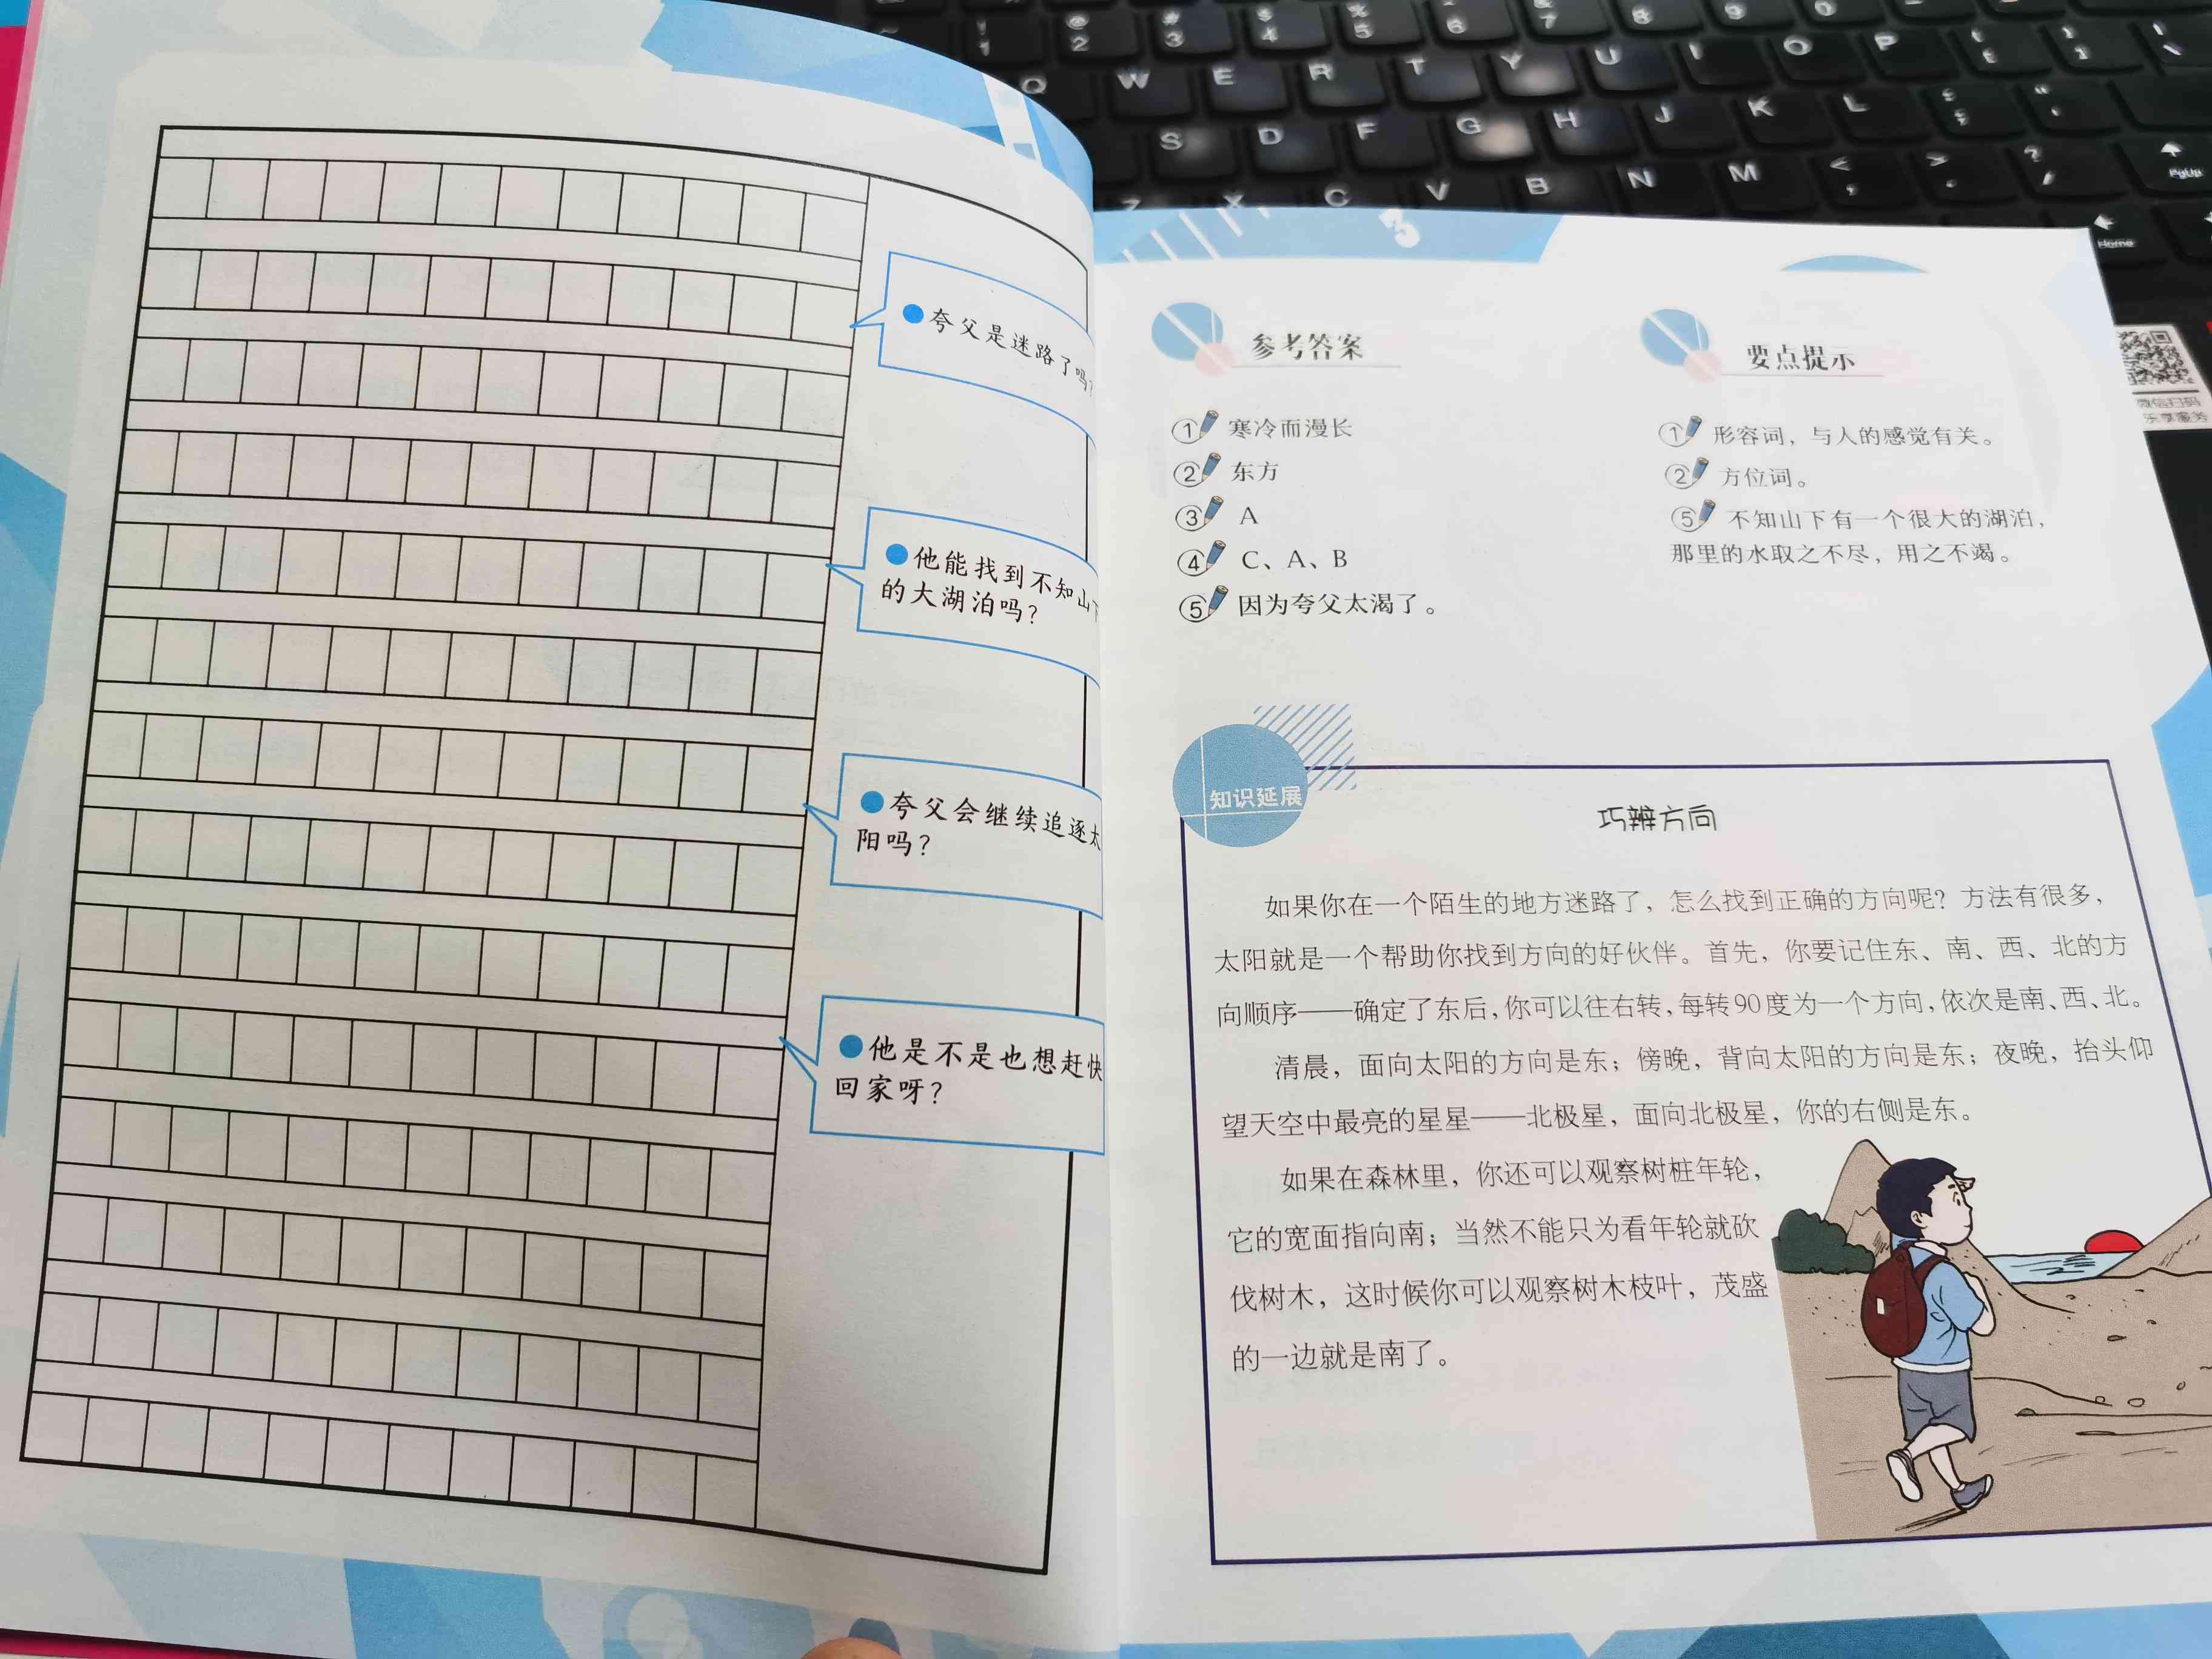 夸父是迷路了吗?
他能找到不知山下
的大湖泊吗?
夸父会继续追逐太
阳吗?
他是不是也想赶快
回家呀?
参考答案
① 寒冷而漫长
② 东方
③ A
④ C、A、B
⑤ 因为夸父太渴了。
要点提示
① 形容词，与人的感觉有关。
② 方位词。
⑤ 不知山下有一个很大的湖泊，
那里的水取之不尽，用之不竭。
知识延展
巧辨方向
如果你在一个陌生的地方迷路了，怎么找到正确的方向呢？方法有很多，
太阳就是一个帮助你找到方向的好伙伴。首先，你要记住东、南、西、北的方
向顺序——确定了东后，你可以往右转，每转90度为一个方向，依次是南、西、北。
清晨，面向太阳的方向是东；傍晚，背向太阳的方向是东；夜晚，抬头仰
望天空中最亮的星星——北极星，面向北极星，你的右侧是东。
如果在森林里，你还可以观察树桩年轮，
它的宽面指向南；当然不能只为看年轮就砍
伐树木，这时候你可以观察树木枝叶，茂盛
的一边就是南了。
微信扫码
乐享服务
! 1
@ 2
# 3
$ 4
% 5
6
& 7
8
9
Q W E R T Y U I O P
S D F G H J K L
Z X C V B N M
PgUp
Home